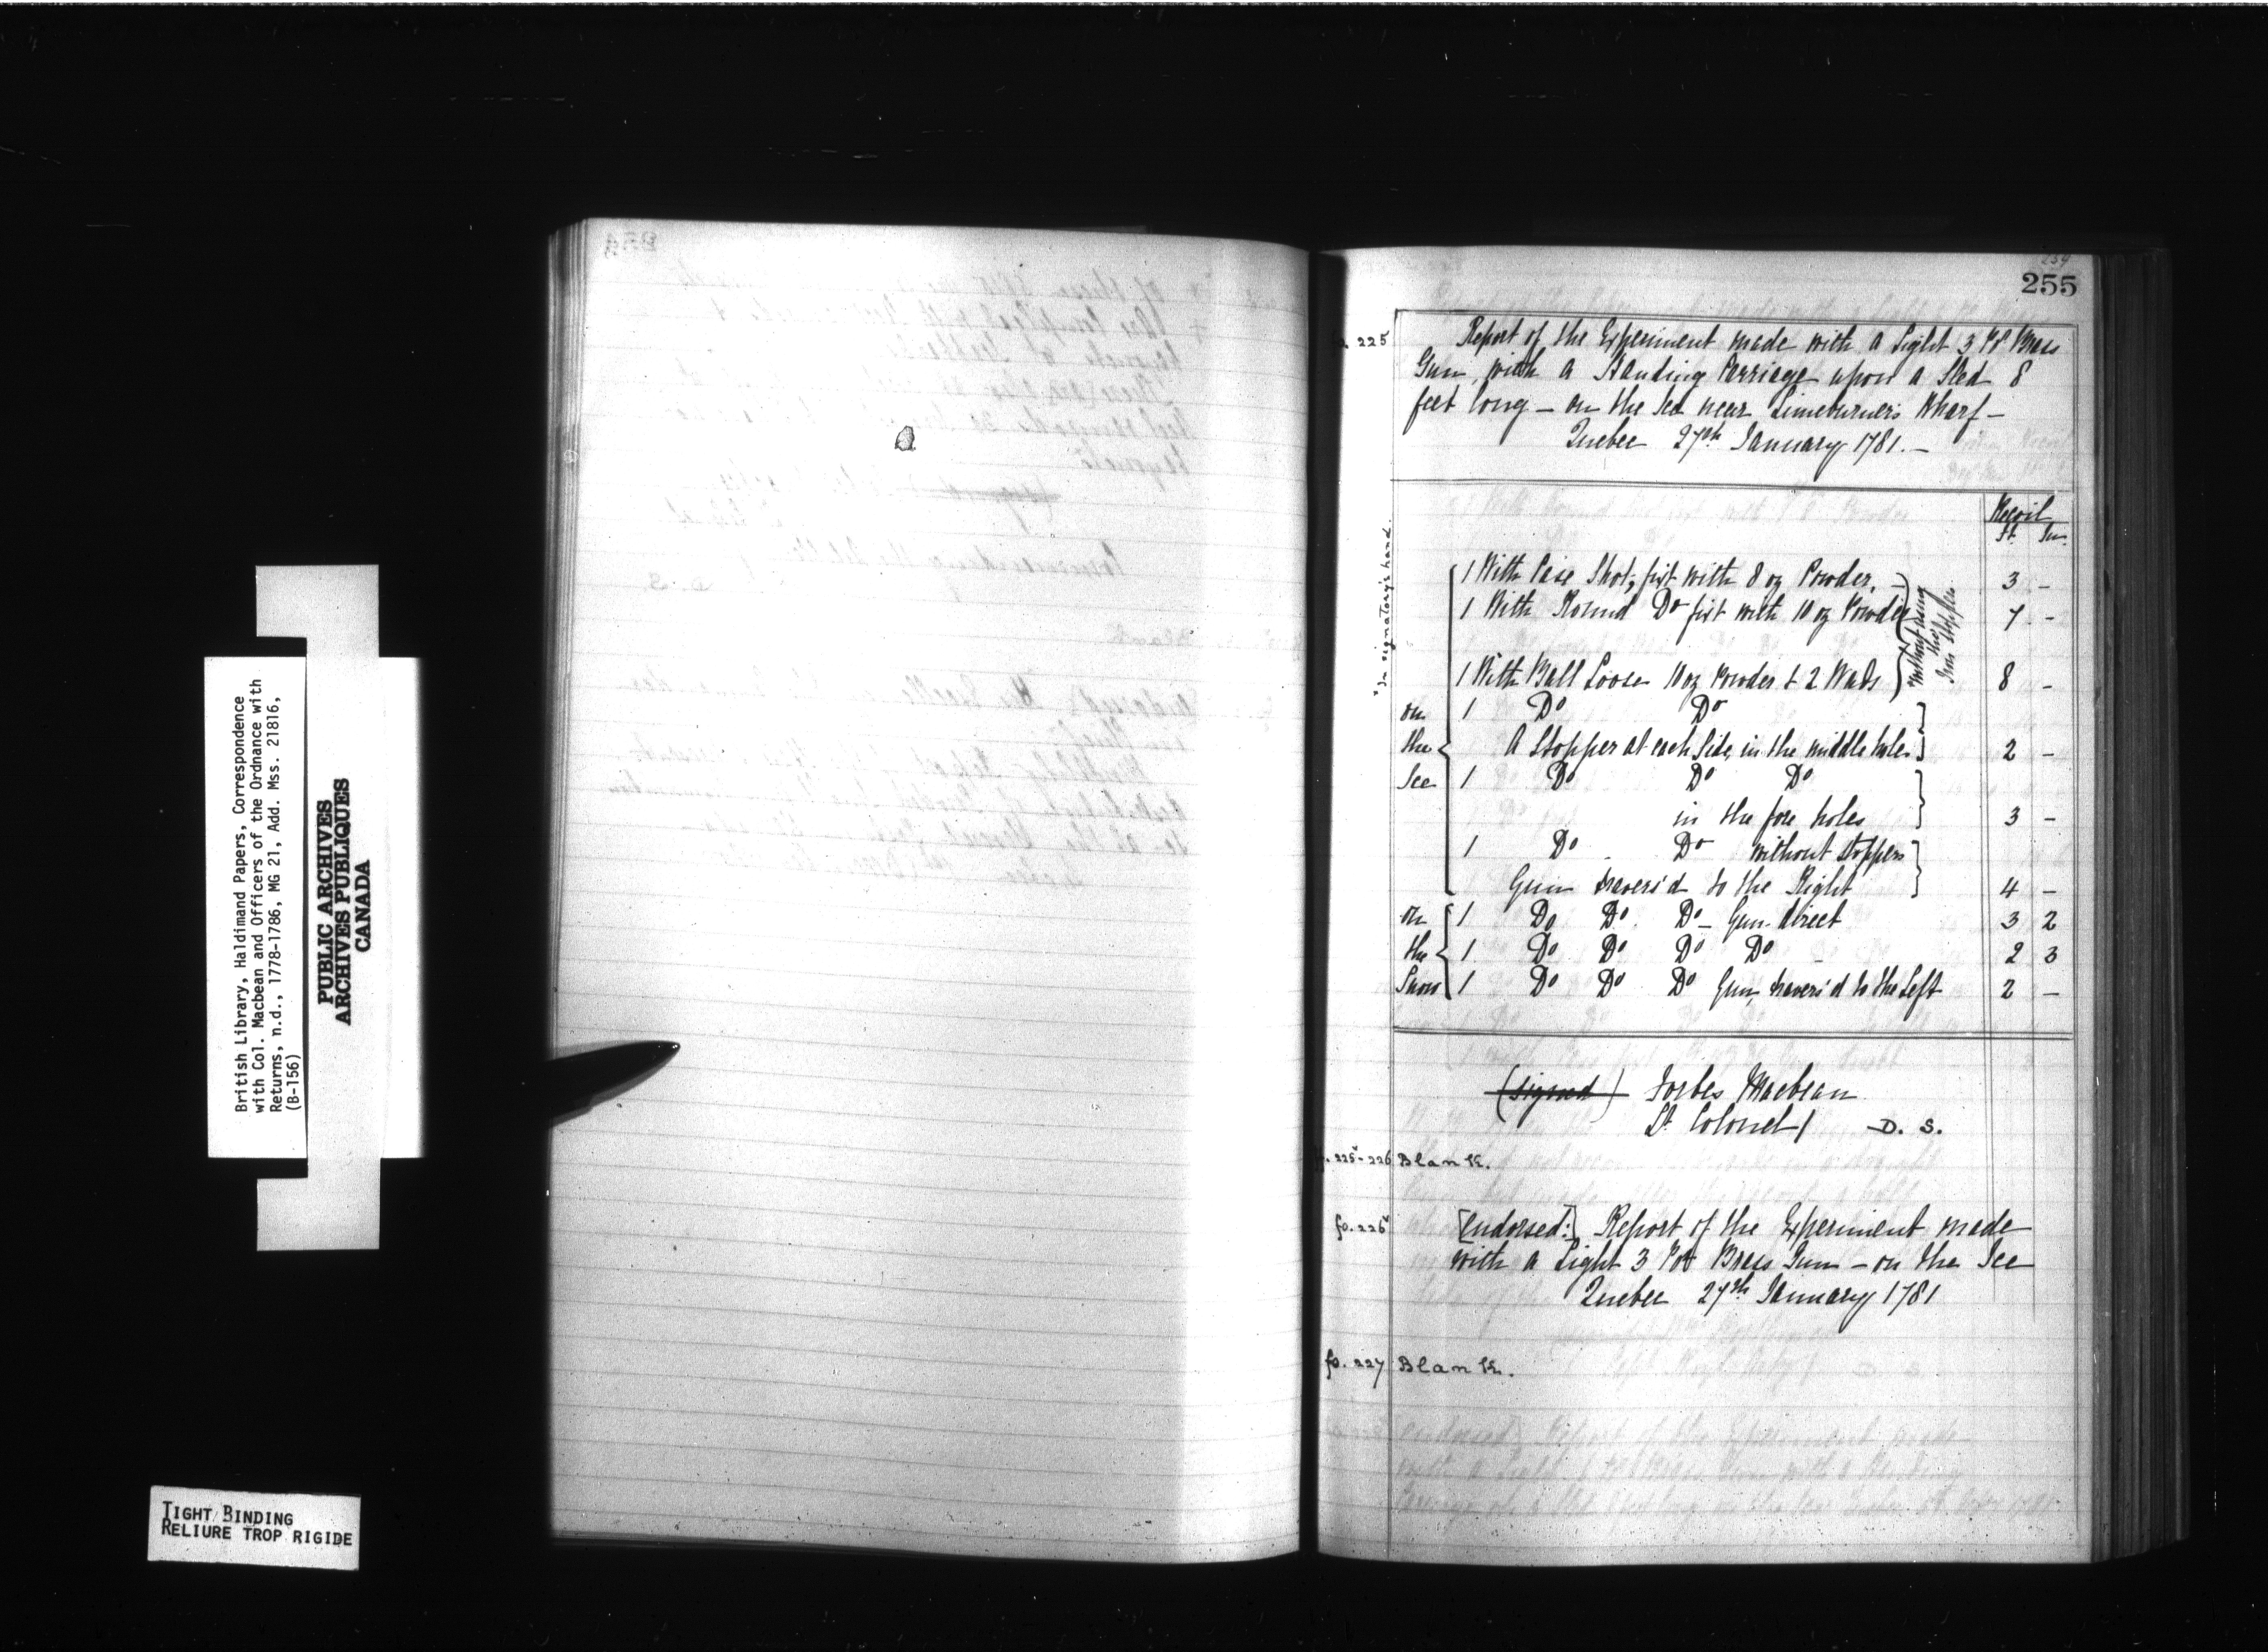 British Library, Haldimand Papers, Correspondence
with Col. Macbean and Officers of the Ordnance with
Returns, n.d., 1778-1786, MG 21, Add. Mss. 21816,
(B-156)
PUBLIC ARCHIVES
ARCHIVES PUBLIQUES
CANADA
TIGHT BINDING
RELIURE TROP RIGIDE
254
255
fo. 225
Report of the Experiment made with a Light 3 Pr Brass
Gun, with a Standing Carriage upon a Sled 8
feet long — on the Ice near Limeburner's Wharf —
Quebec 27th January 1781. —
Recoil
Ft. In.
"In signatory's hand.
1 With Case Shot, fixt with 8 oz Powder. — 3 -
1 With Round Do fixt with 10 oz Powder 7 -
without using
the
Iron Stopper
1 With Ball Loose 10 oz Powder & 2 Wads 8 -
on 1 Do Do
the A Stopper at each Side, in the middle holes 2 -
Ice 1 Do Do Do
in the fore holes 3 -
1 Do Do without stoppers
Gun travers'd to the Right 4 -
on 1 Do Do Do — Gun direct 3 2
the 1 Do Do Do Do 2 3
Snow 1 Do Do Do Gun, travers'd to the Left 2 -
(signed) Forbes Macbean
Lt Colonel / D. S.
fo. 225v-226 Blank.
fo. 226v [Endorsed:] Report of the Experiment made
with a Light 3 Por Brass Gun — on the Ice
Quebec 27th January 1781
fo. 227 Blank.